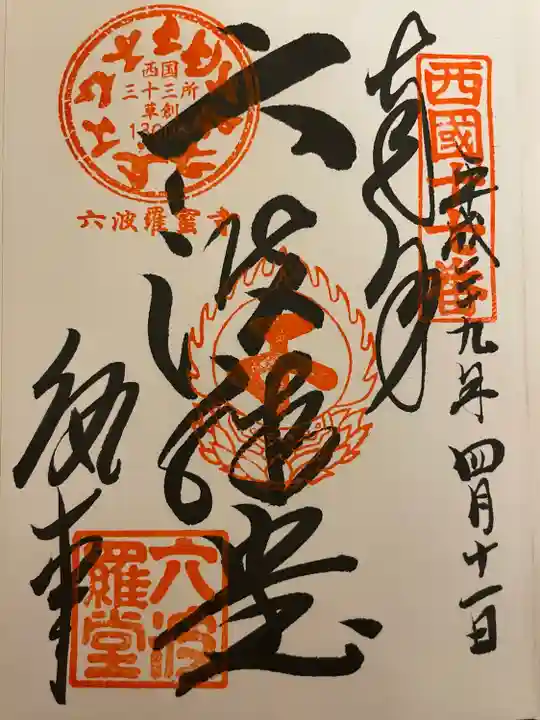 西國十七番
奉拝
平成二十九年四月十一日
六波羅堂
西国
三十三所
草創
1300年
六波羅蜜寺
六波羅堂
執事